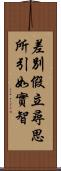 差別假立尋思
所引如實智